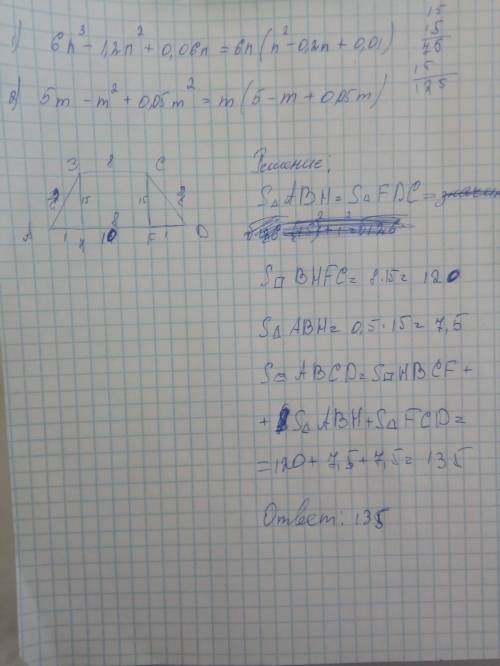 1) 6n³ - 1,2n² + 0,06n = 6n(n² - 0,2n + 0,01)
2) 5m - m² + 0,05m² = m(5 - m + 0,05m)
15
15
75
15
125
B 8 C
2 15 15 2
8
A 1 H 10 F 1 D
Решение:
S△ABH = S△FDC =
S□BHFC = 8·15 = 120
S△ABH = 0,5·15 = 7,5
S▱ABCD = S□HBCF +
+ S△ABH + S△FCD =
= 120 + 7,5 + 7,5 = 135
Ответ: 135